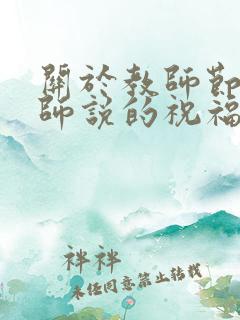 關於教師節
師說的祝福
袢袢
未经同意禁止转载